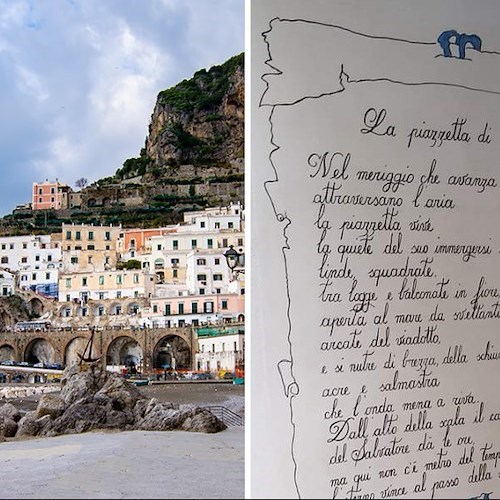 La piazzetta di
Nel meriggio che avanza
attraversano l'aria
la piazzetta vive
la quiete del suo immergersi
linde, squadrate,
tra logge e balconate in fiore,
aperta al mare da svettanti
arcate del viadotto,
e si nutre di brezza, della
acre e salmastra
che l'onda mena a riva.
Dall'alto della scala il
del Salvatore dà le ore,
ma qui non c'è metro del
l'eterno vince al passo della